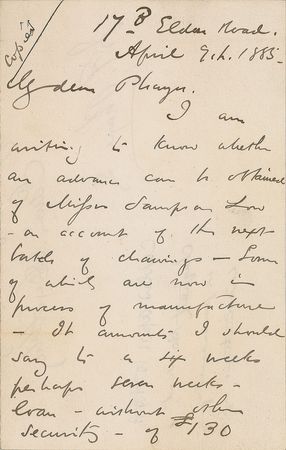 copied
17B Eldon Road.
April 9th. 1885
My dear Thayer.
I am
writing to know whether
an advance can be obtained
of Messrs Sampson Low
- on account of the next
batch of drawings - Some
of which are now in
process of manufacture
- It amounts I should
say to a six weeks
perhaps seven weeks -
loan - without other
security - of £130